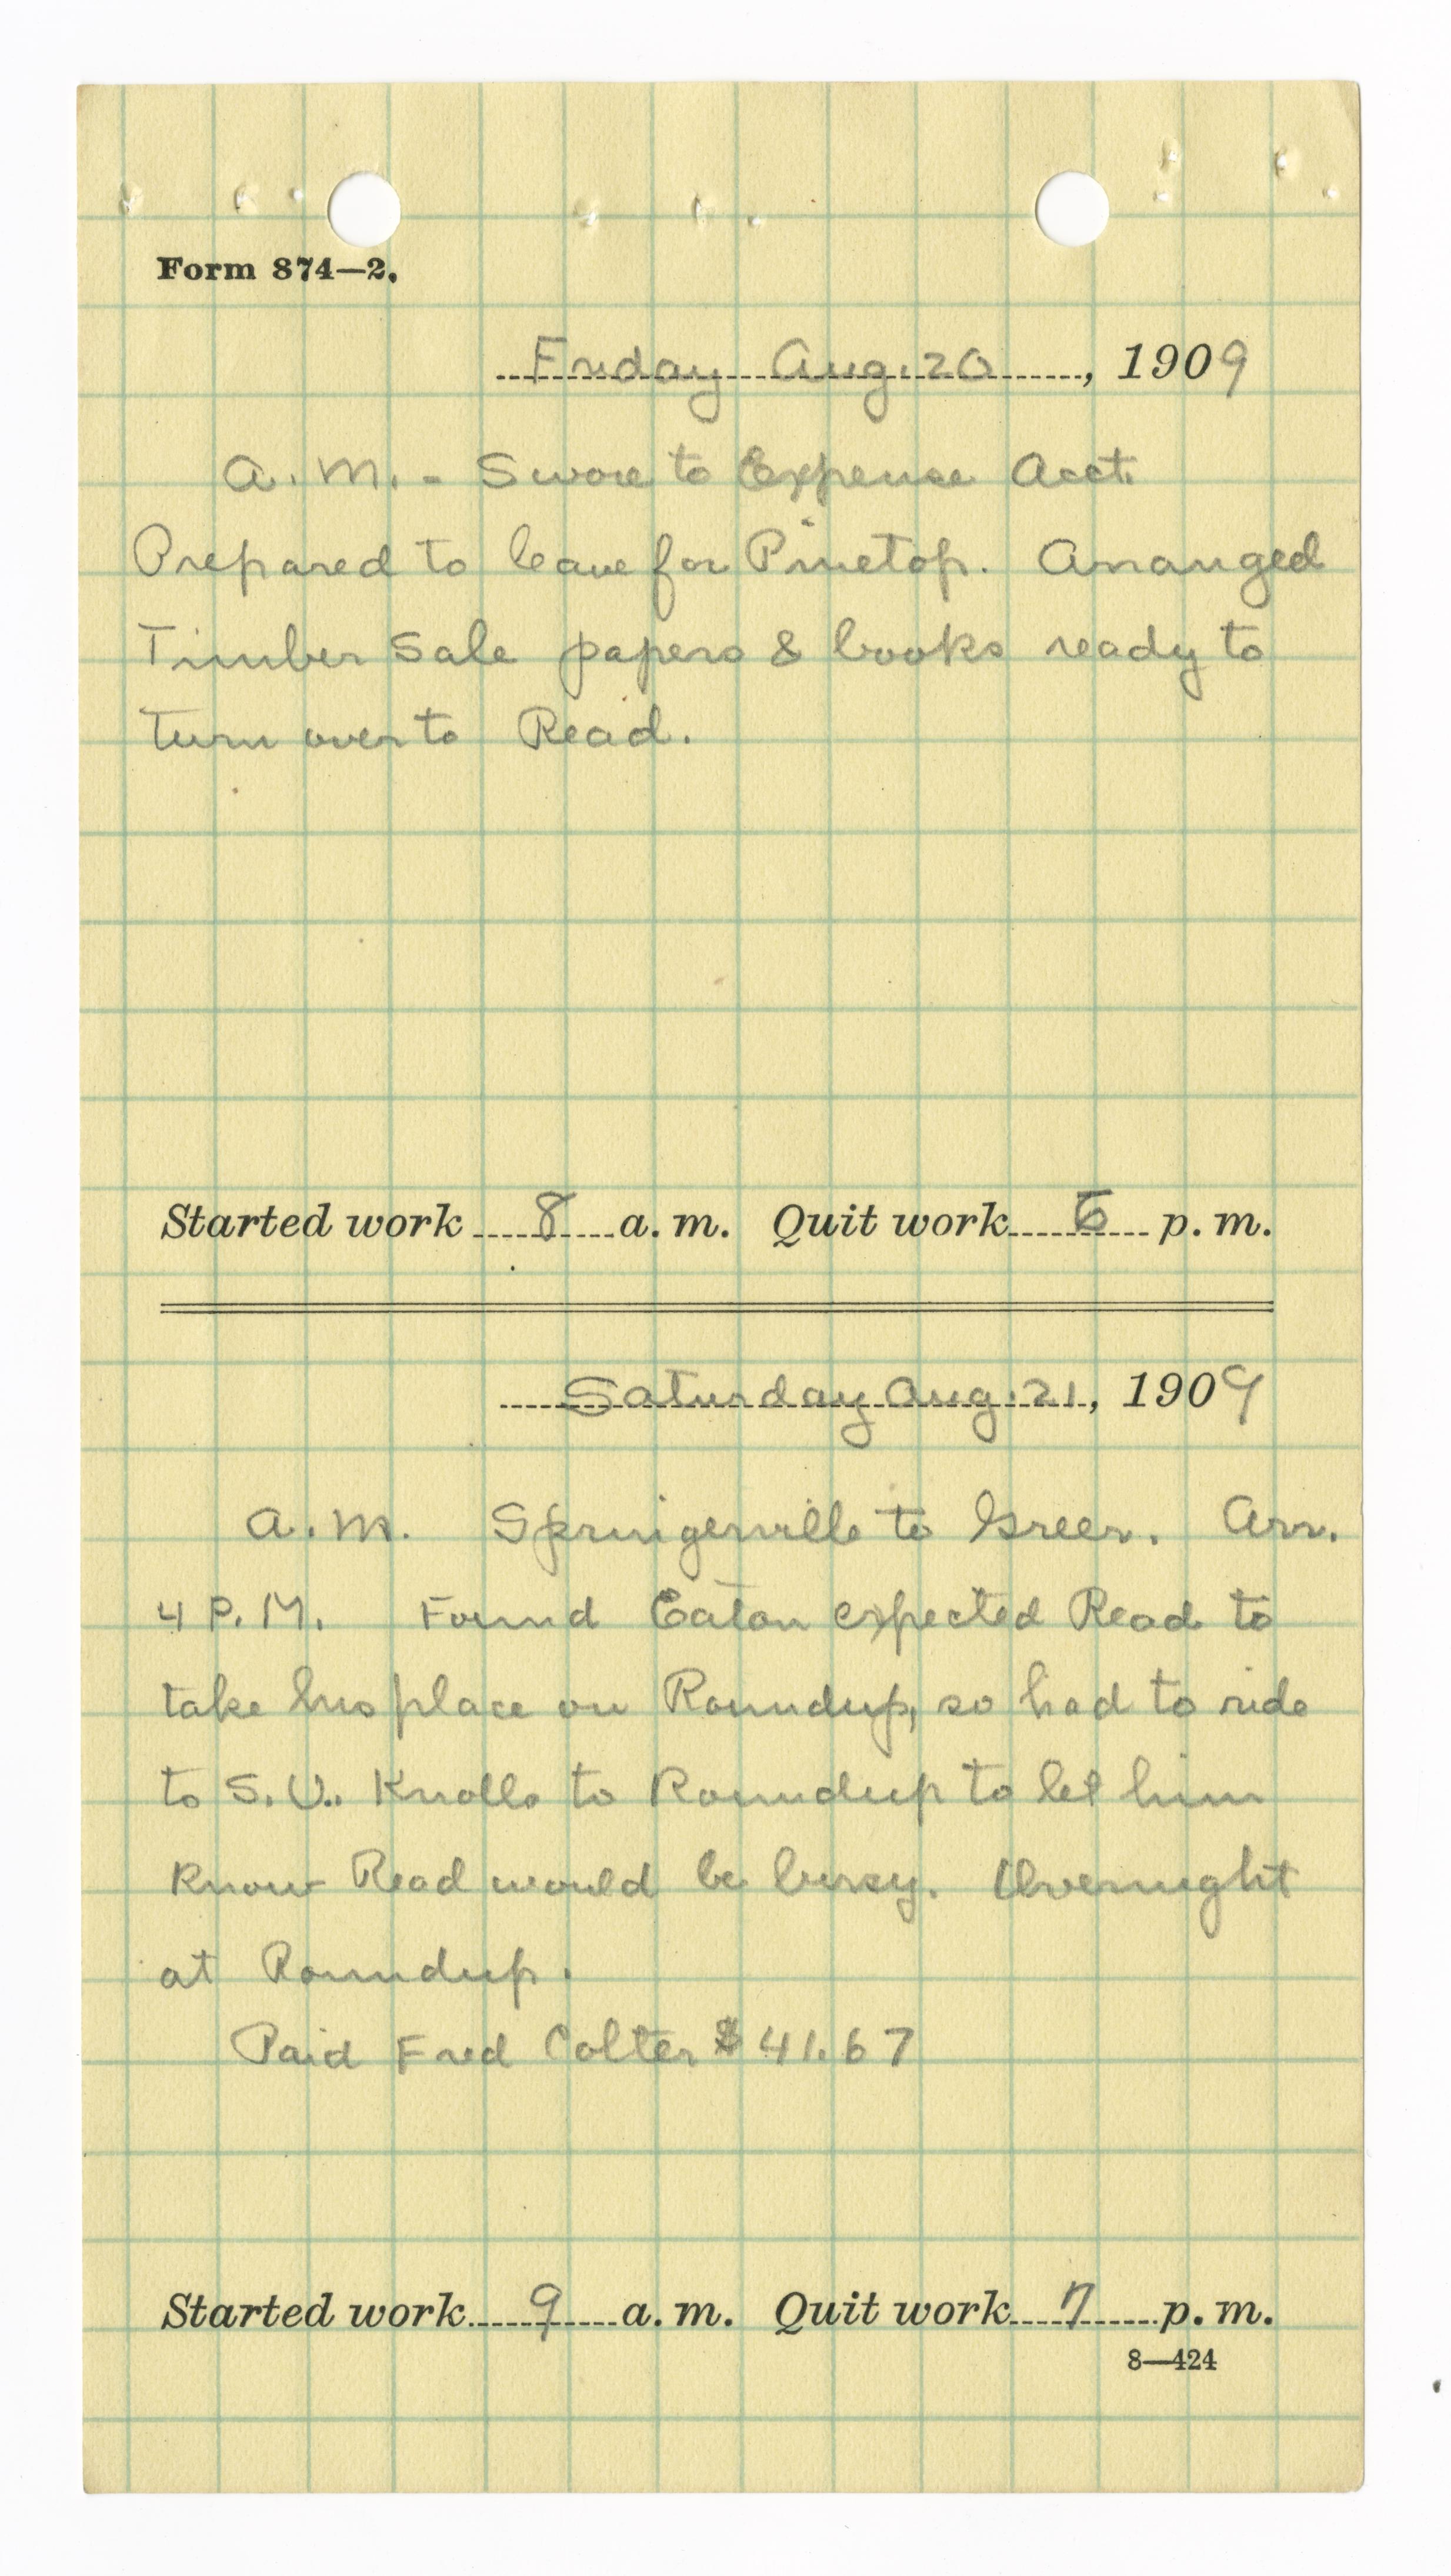 Form 874—2.
Friday Aug. 20, 1909
A.M. - Swore to Expense Acct.
Prepared to leave for Pinetop. Arranged
Timber Sale papers & books ready to
turn over to Read.
Started work 8 a. m. Quit work p. m.
Saturday Aug. 21, 1909
A.M. Springerville to Greer. Arr.
4 P.M. Found Eaton expected Read to
take his place on Roundup, so had to ride
to S.U. Knolls to Roundup to let him
know Read would be busy. Overnight
at Roundup.
Paid Fred Colter $41.67
Started work 9 a. m. Quit work 7 p. m.
8—424